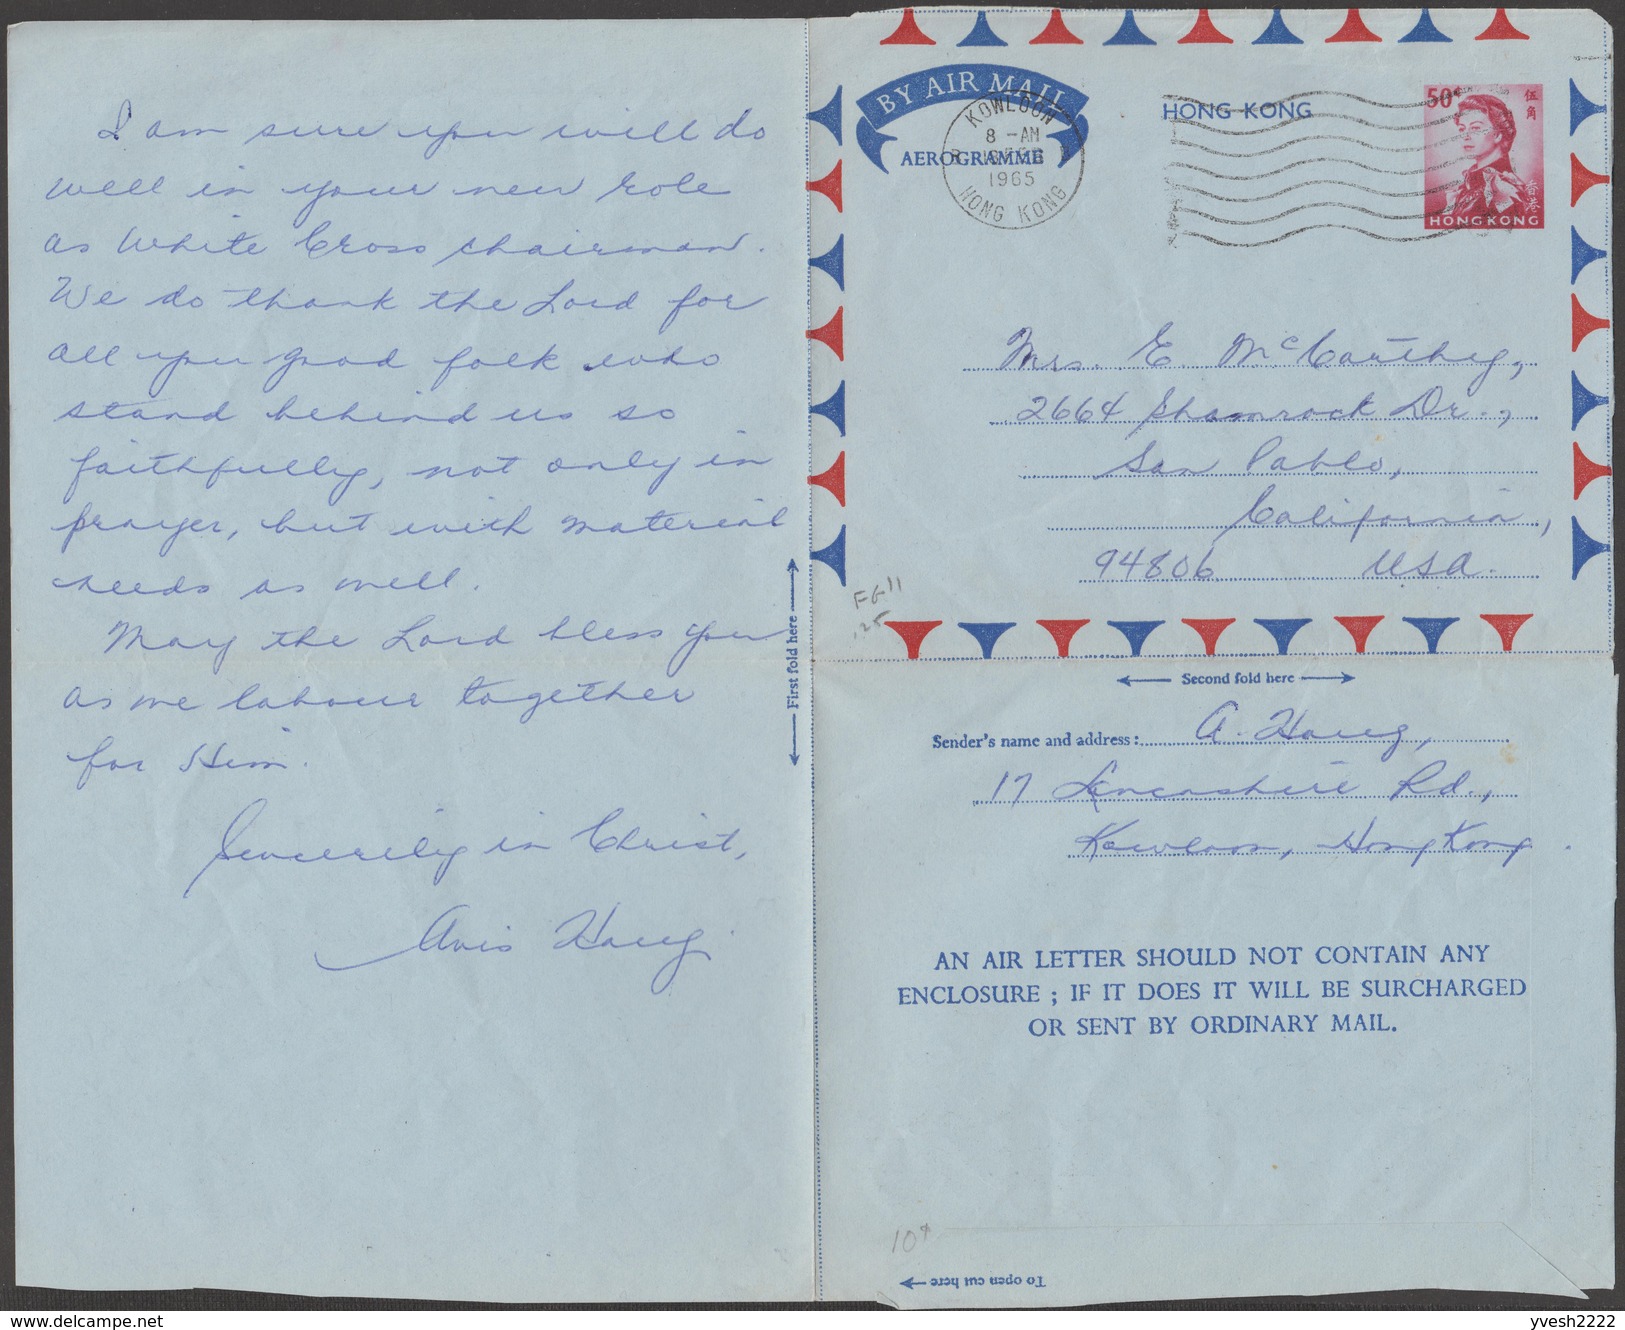 I am sure you will do
well in your new role
as White Cross chairman.
We do thank the Lord for
all you good folk who
stand behind us so
faithfully, not only in
prayer, but with material
needs as well.
May the Lord bless you
as we labour together
for Him.
Sincerely in Christ,
Avis Haug.
First fold here
BY AIR MAIL
AEROGRAMME
KOWLOON
8 -AM
1965
HONG KONG
HONG KONG
50¢
伍角
香港
HONG KONG
Mrs. E. McCarthey,
2664 Shamrock Dr.,
San Pablo,
California,
94806 USA.
FG 11
.25
Second fold here
Sender's name and address: A. Haug,
17 Lancashire Rd.,
Kowloon, Hong Kong.
AN AIR LETTER SHOULD NOT CONTAIN ANY
ENCLOSURE ; IF IT DOES IT WILL BE SURCHARGED
OR SENT BY ORDINARY MAIL.
To open cut here
yvesh2222
delcampe.net